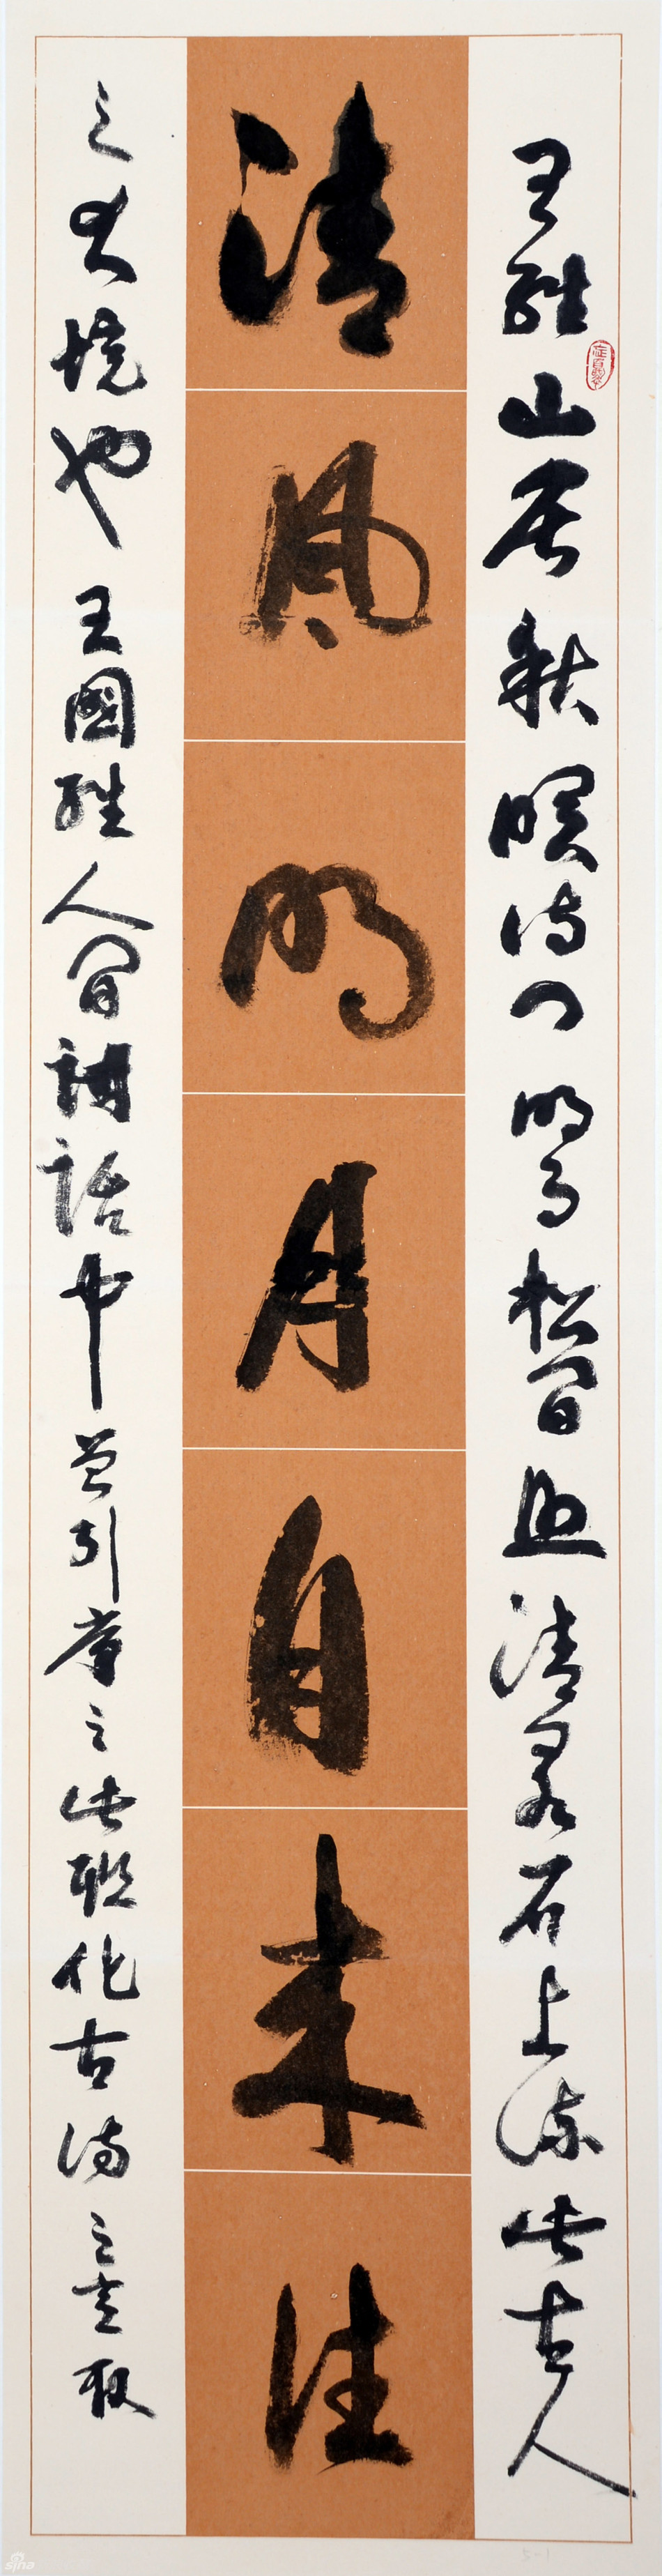 王維山居秋暝詩明月松間照清泉石上流此古人
清風明月自来往
之大境也王國維人間詞話中曾引之此聯化古詩之意取
sina